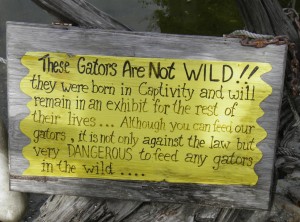 These Gators Are Not WILD!!
they were born in Captivity and will
remain in an exhibit for the rest of
their lives... Although you can feed our
gators, it is not only against the law but
very DANGEROUS to feed any gators
in the wild ....